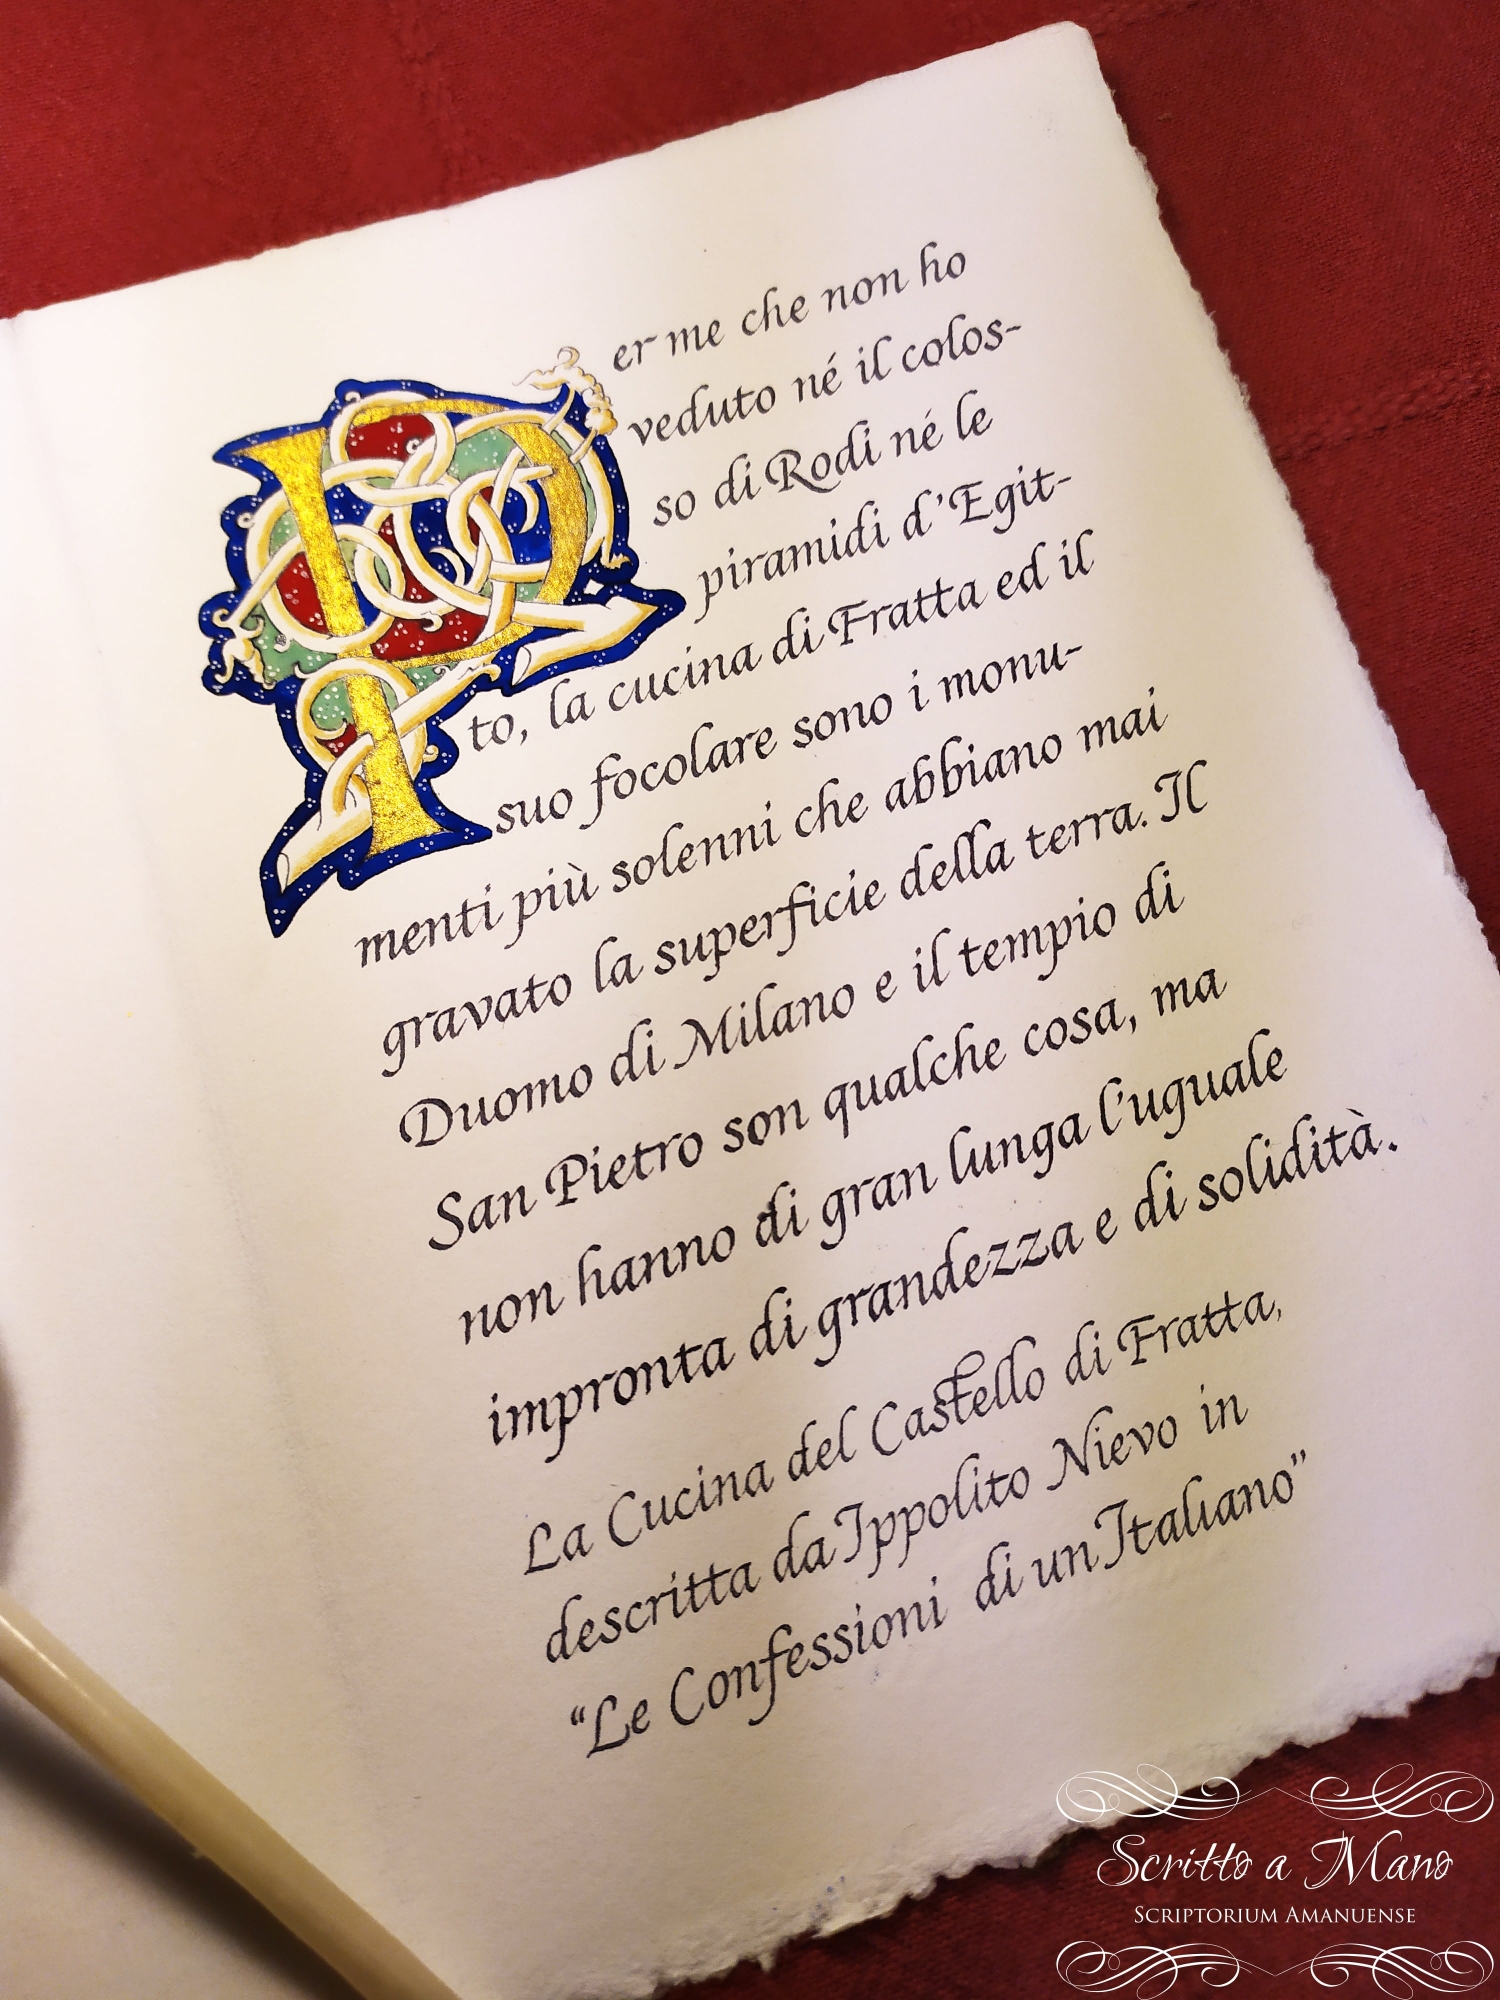 Per me che non ho
veduto né il colos-
so di Rodi né le
piramidi d'Egit-
to, la cucina di Fratta ed il
suo focolare sono i monu-
menti più solenni che abbiano mai
gravato la superficie della terra. Il
Duomo di Milano e il tempio di
San Pietro son qualche cosa, ma
non hanno di gran lunga l'uguale
impronta di grandezza e di solidità.
La Cucina del Castello di Fratta,
descritta da Ippolito Nievo in
"Le Confessioni di un Italiano"
Scritto a Mano
Scriptorium Amanuense